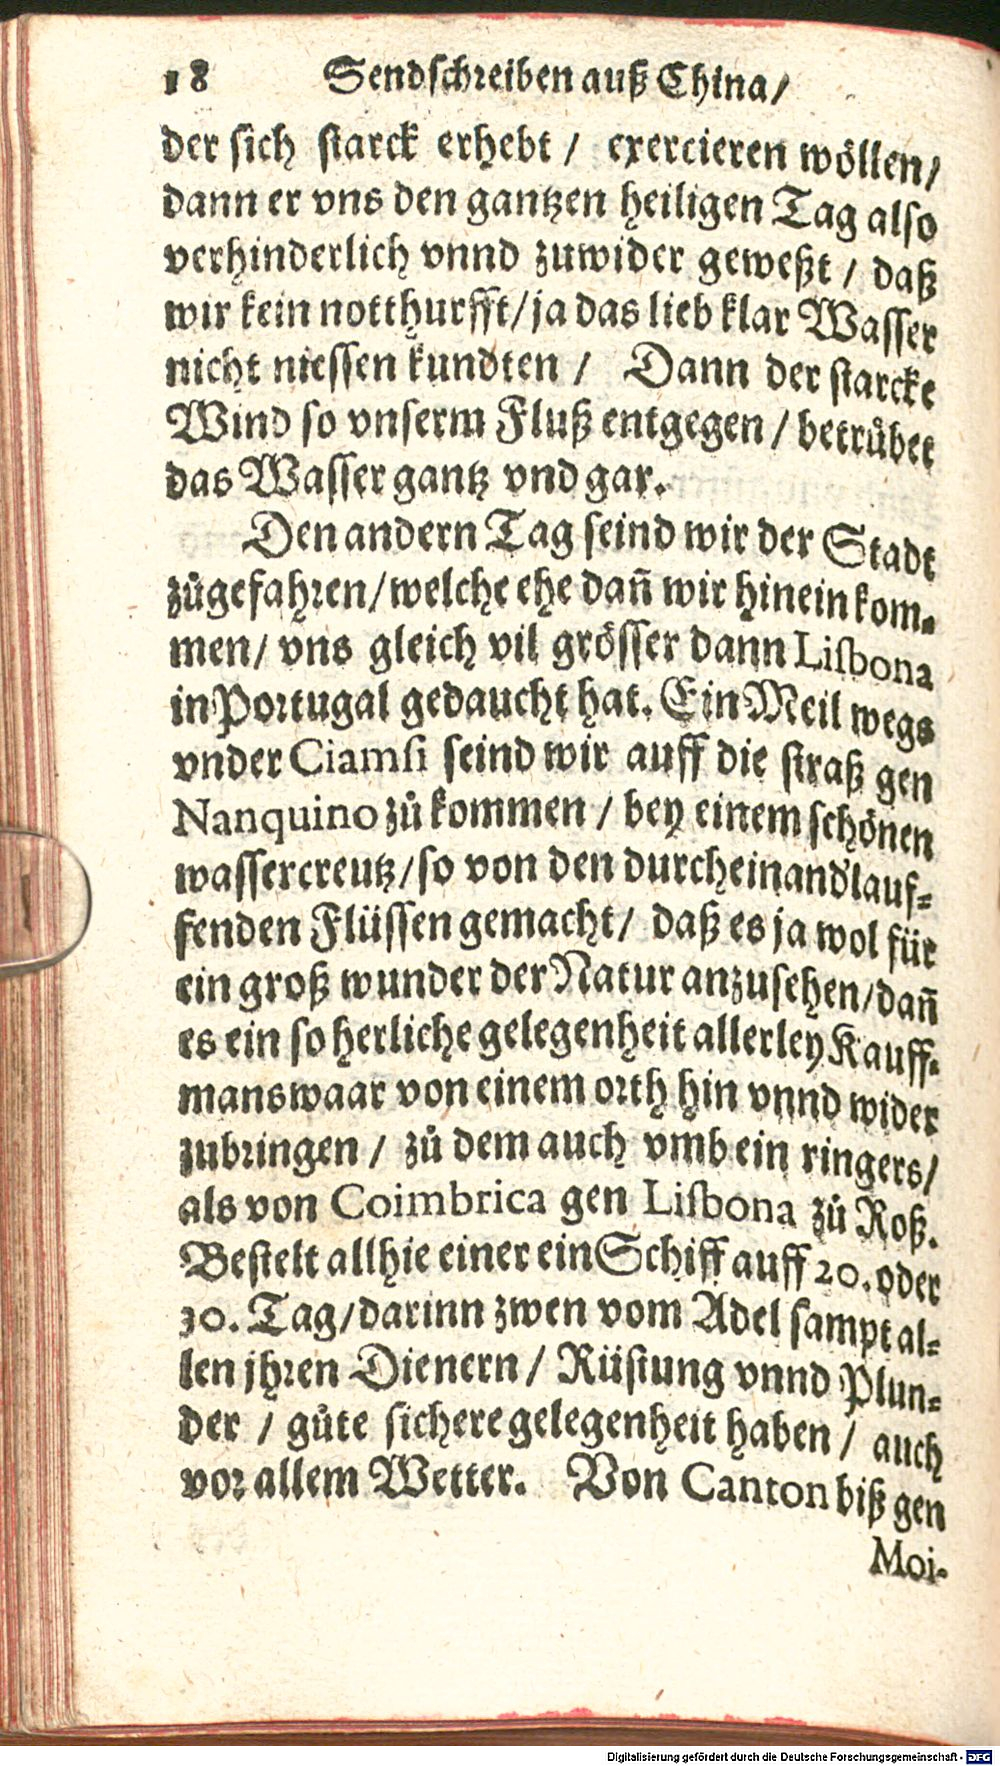 18 Sendschreiben auß China/
der sich starck erhebt / exercieren wöllen/
dann er vns den gantzen heiligen Tag also
verhinderlich vnnd zuwider geweßt / daß
wir kein notthurfft/ja das lieb klar Wasser
nicht niessen kundten / Dann der starcke
Wind so vnserm Fluß entgegen / betrübet
das Wasser gantz vnd gar.
Den andern Tag seind wir der Stadt
zůgefahren/welche ehe dañ wir hinein kom-
men/ vns gleich vil grösser dann Lisbona
in Portugal gedaucht hat. Ein Meil wegs
vnder Ciamsi seind wir auff die straß gen
Nanquino zů kommen / bey einem schönen
wassercreutz/so von den durcheinand'lauf-
fenden Flüssen gemacht/ daß es ja wol für
ein groß wunder der Natur anzusehen/dañ
es ein so herliche gelegenheit allerley Kauff-
manswaar von einem orth hin vnnd wider
zubringen / zů dem auch vmb ein ringers/
als von Coimbrica gen Lisbona zů Roß.
Bestelt allhie einer ein Schiff auff 20. oder
30. Tag/darinn zwen vom Adel sampt al-
len jhren Dienern / Rüstung vnnd Plun-
der / gůte sichere gelegenheit haben / auch
vor allem Wetter. Von Canton biß gen
Moi-
Digitalisierung gefördert durch die Deutsche Forschungsgemeinschaft - DFG